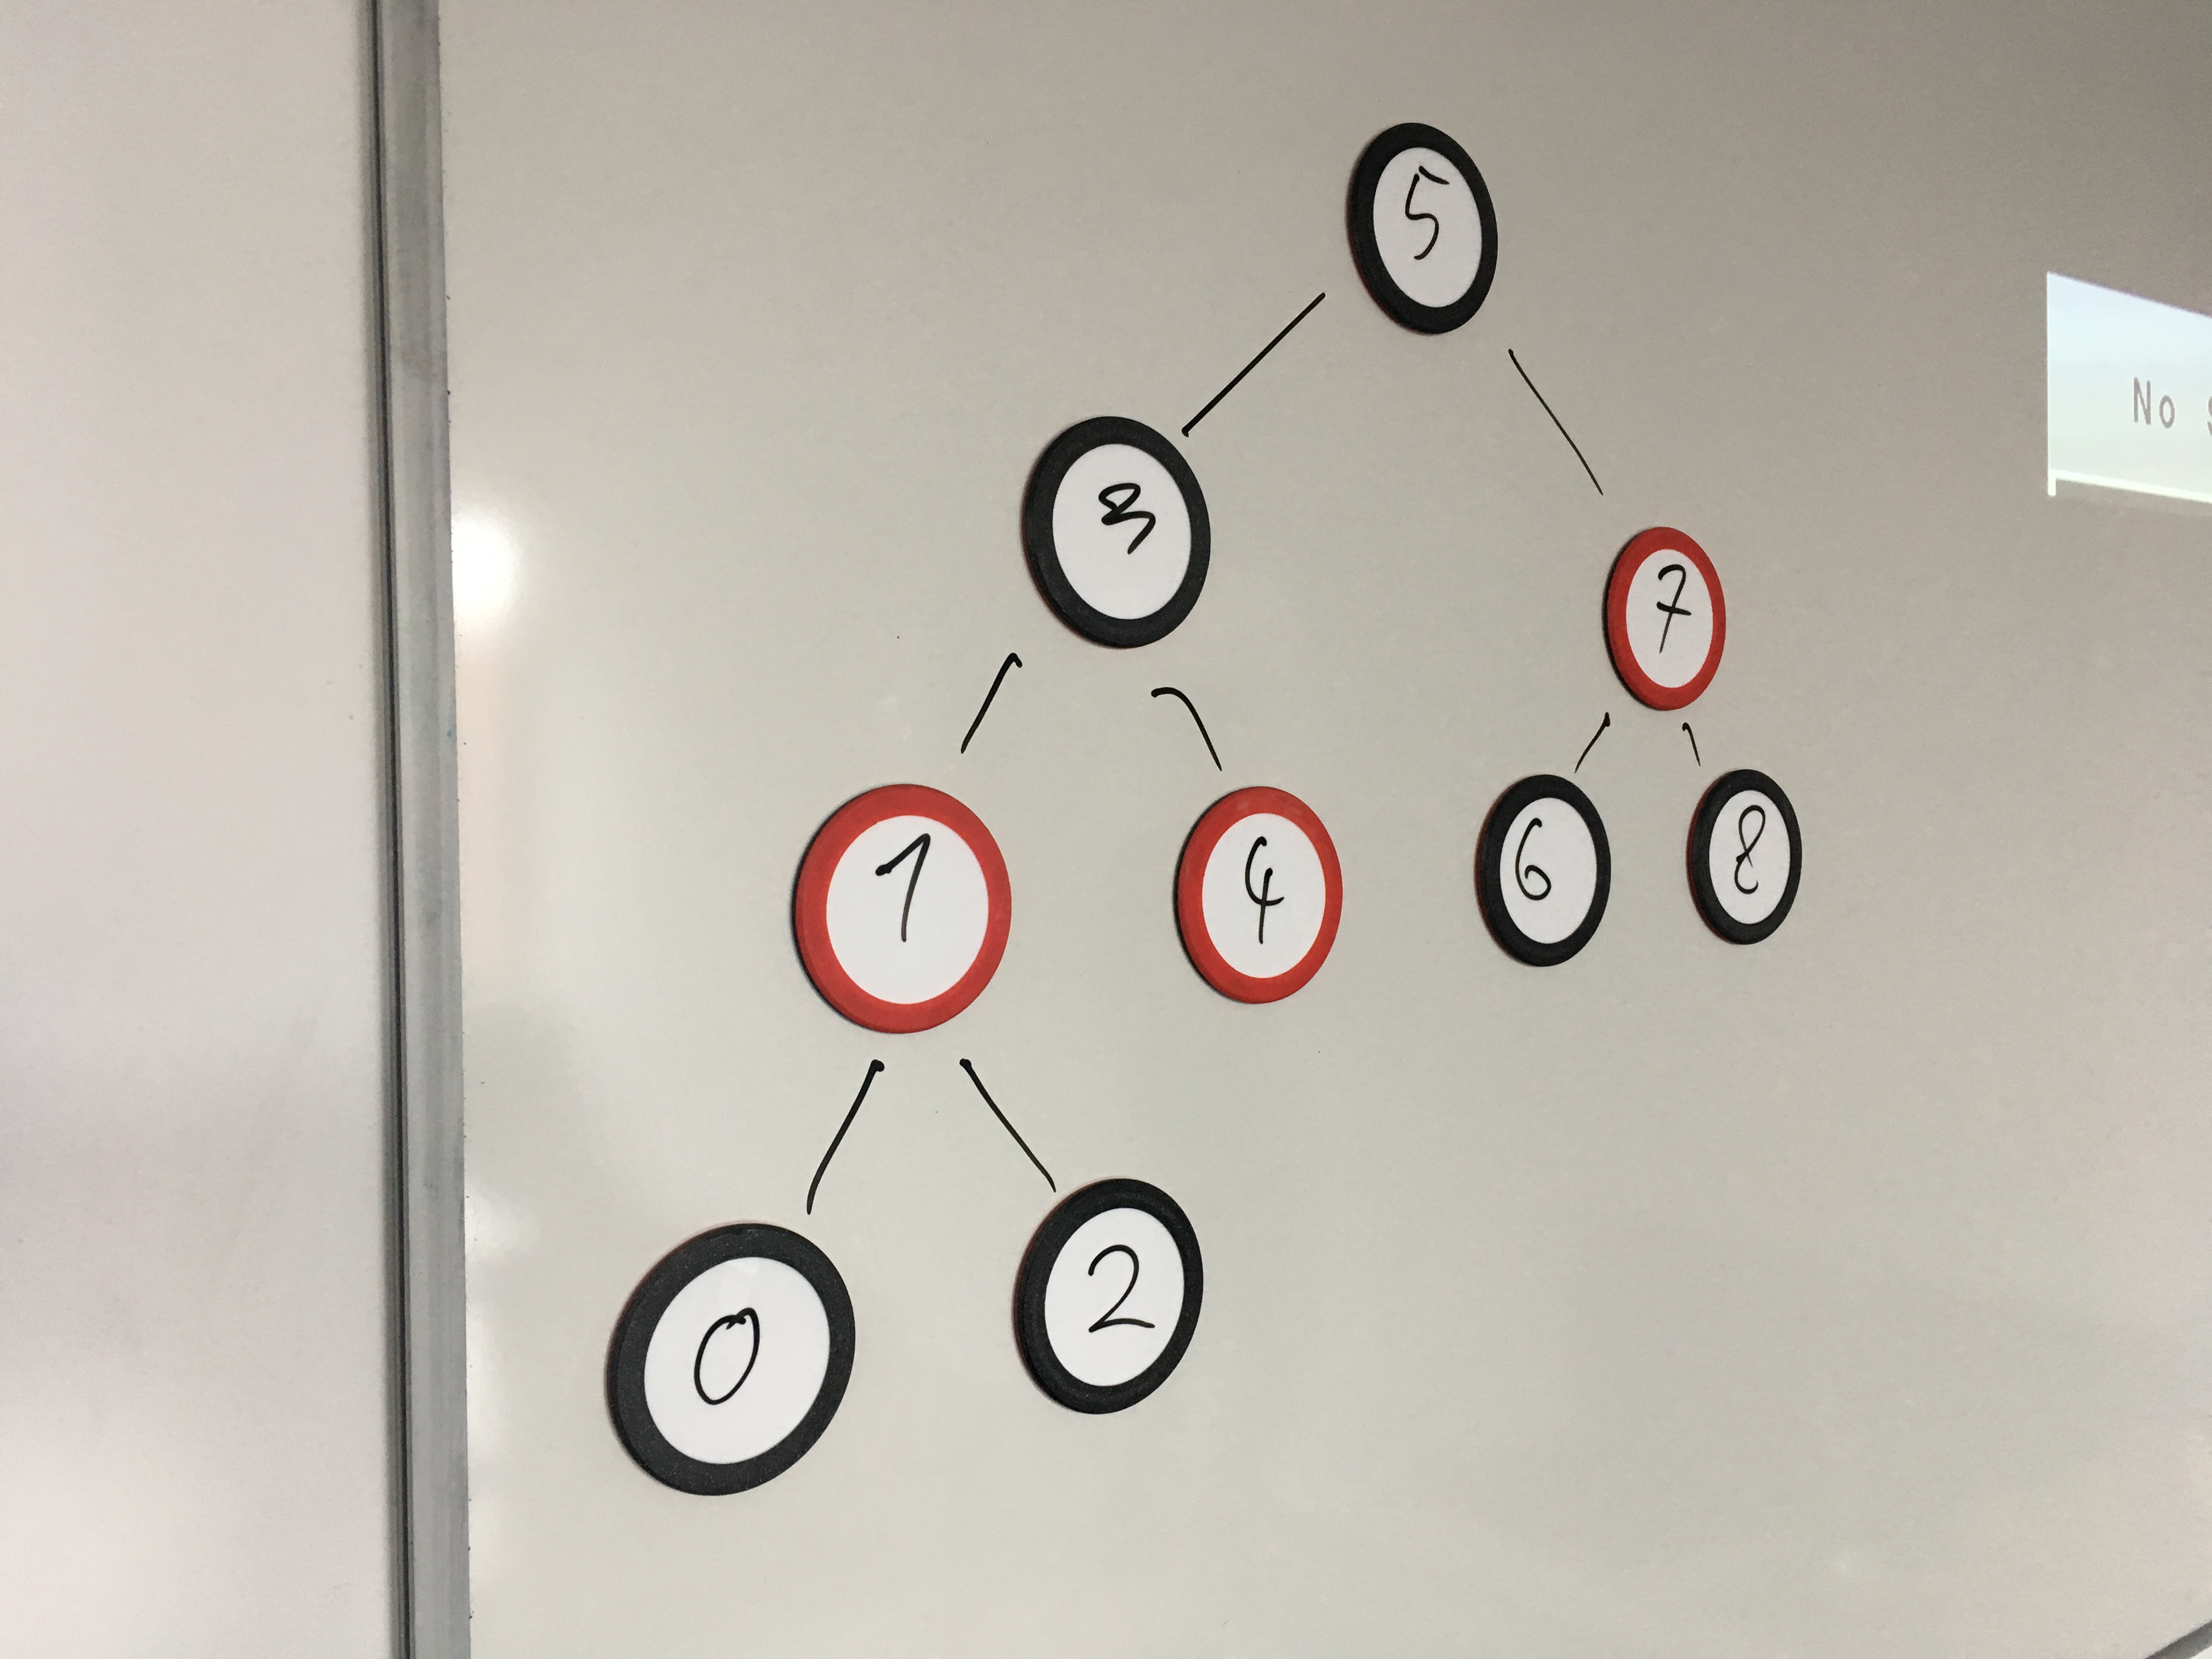 5
3
7
1
4
6
8
0
2
No